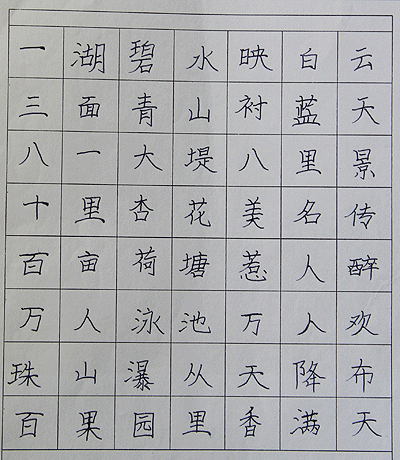 一湖碧水映白云
三面青山衬蓝天
八一大堤八里景
十里杏花美名传
百亩荷塘惹人醉
万人泳池万人欢
珠山瀑从天降布
百果园里香满天